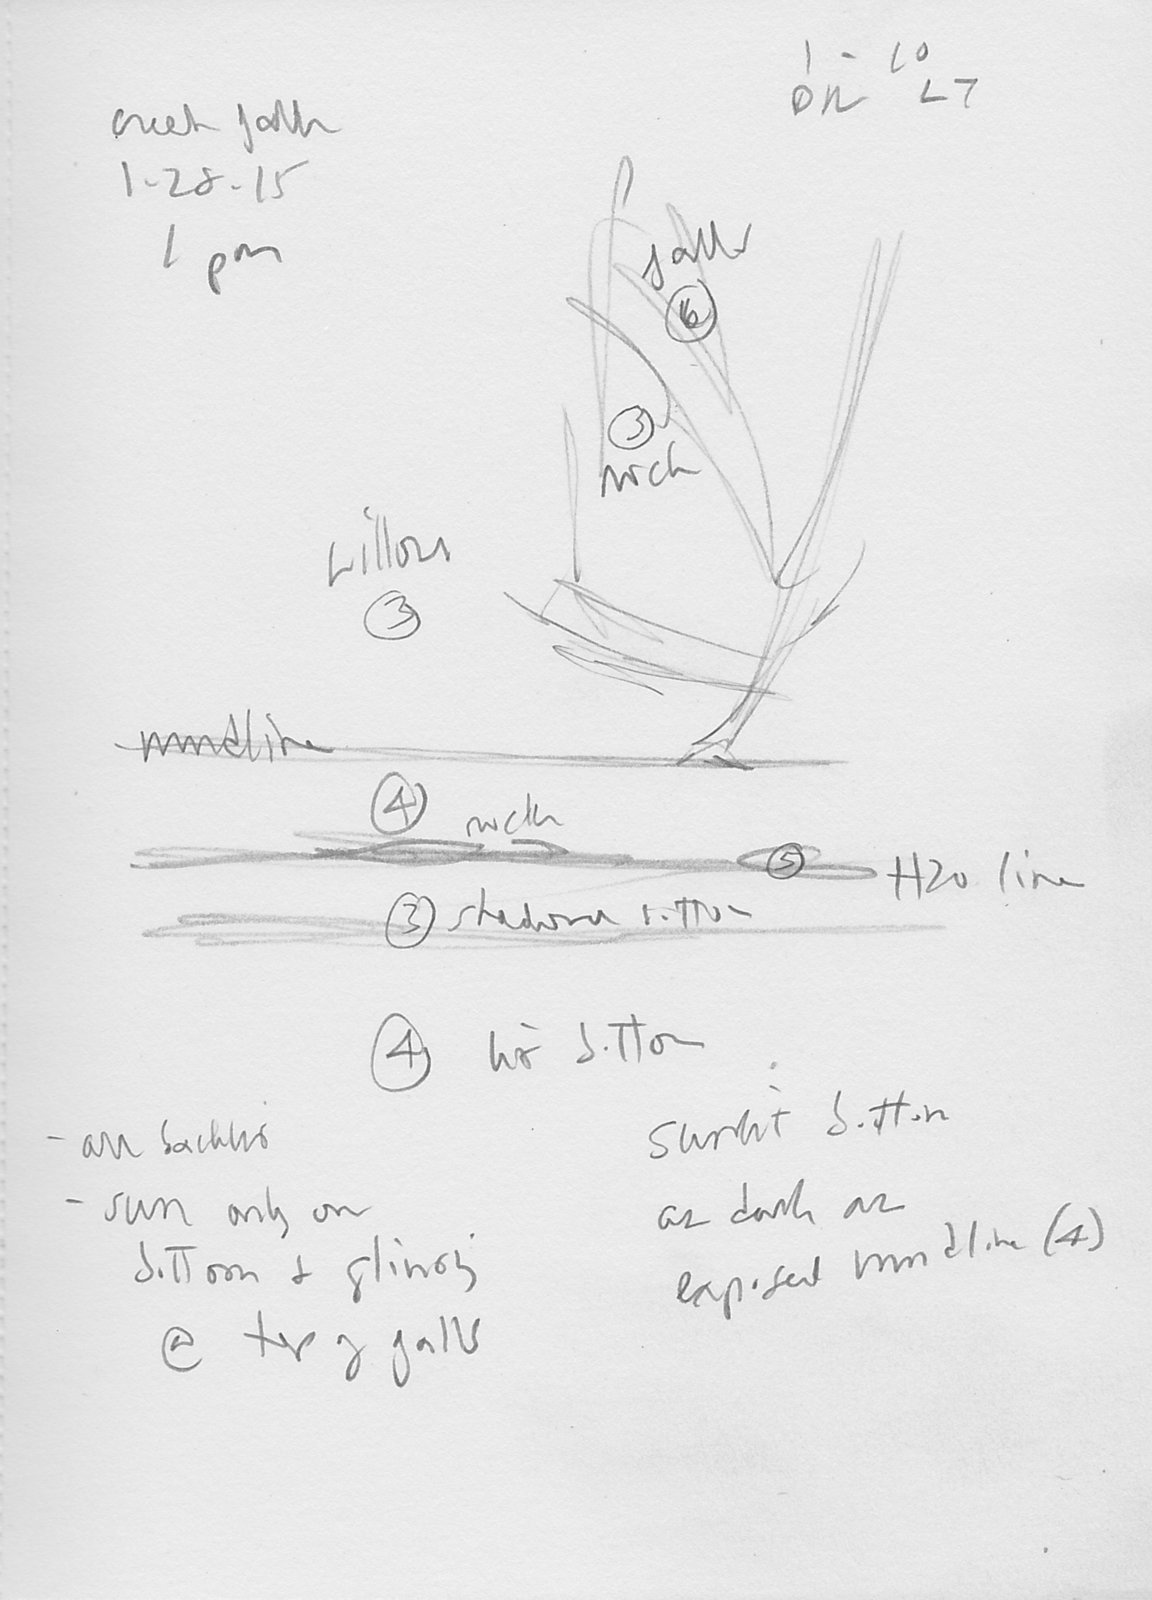 1 - 10
DK LT
creek falls
1-28-15
1 pm
falls
6
3
rock
willows
3
mudline
4 rock
5
H20 line
3 shadow bottom
4 lit bottom
- all backlit
- sun only on
bottom & glinting
@ top of falls
sunlit bottom
as dark as
exposed mudline (4)